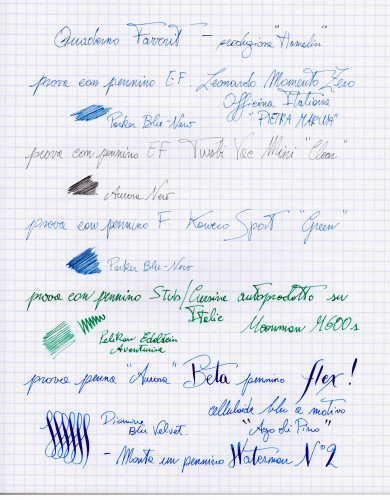 Quaderno Favorit - produzione "Hamelin"
prova con pennino EF Leonardo Momento Zero
Officina Italiana
"PIETRA MARINA"
Parker Blue-Nero
prova con pennino EF Twsbi Vac Mini "Clear"
Aurora Nero
prova con pennino F Kaweco Sport "Green"
Parker Blu-Nero
prova con pennino Stub/Cursive autoprodotto su
Italic Moonman M600s
Pelikan Edelstein
Aventurine
prova penna "Aurora" Beta pennino flex!
celluloide blu a motivo
"Ago di Pino"
Diamine
Blu Velvet
- Monta un pennino Waterman N°2